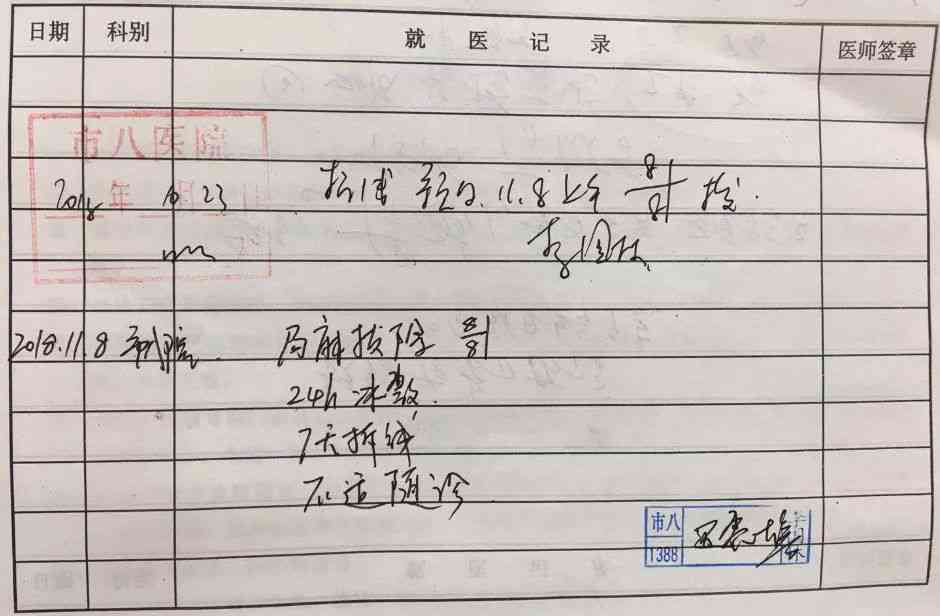 日期 科别 就医记录 医师签章
市八医院
2018 年 10.23 预约 11.8上午 8 拔.
8
2018.11.8 市八医院. 局麻拔除 8
8
24h冰敷.
7天拆线
不适随诊
市八
1388